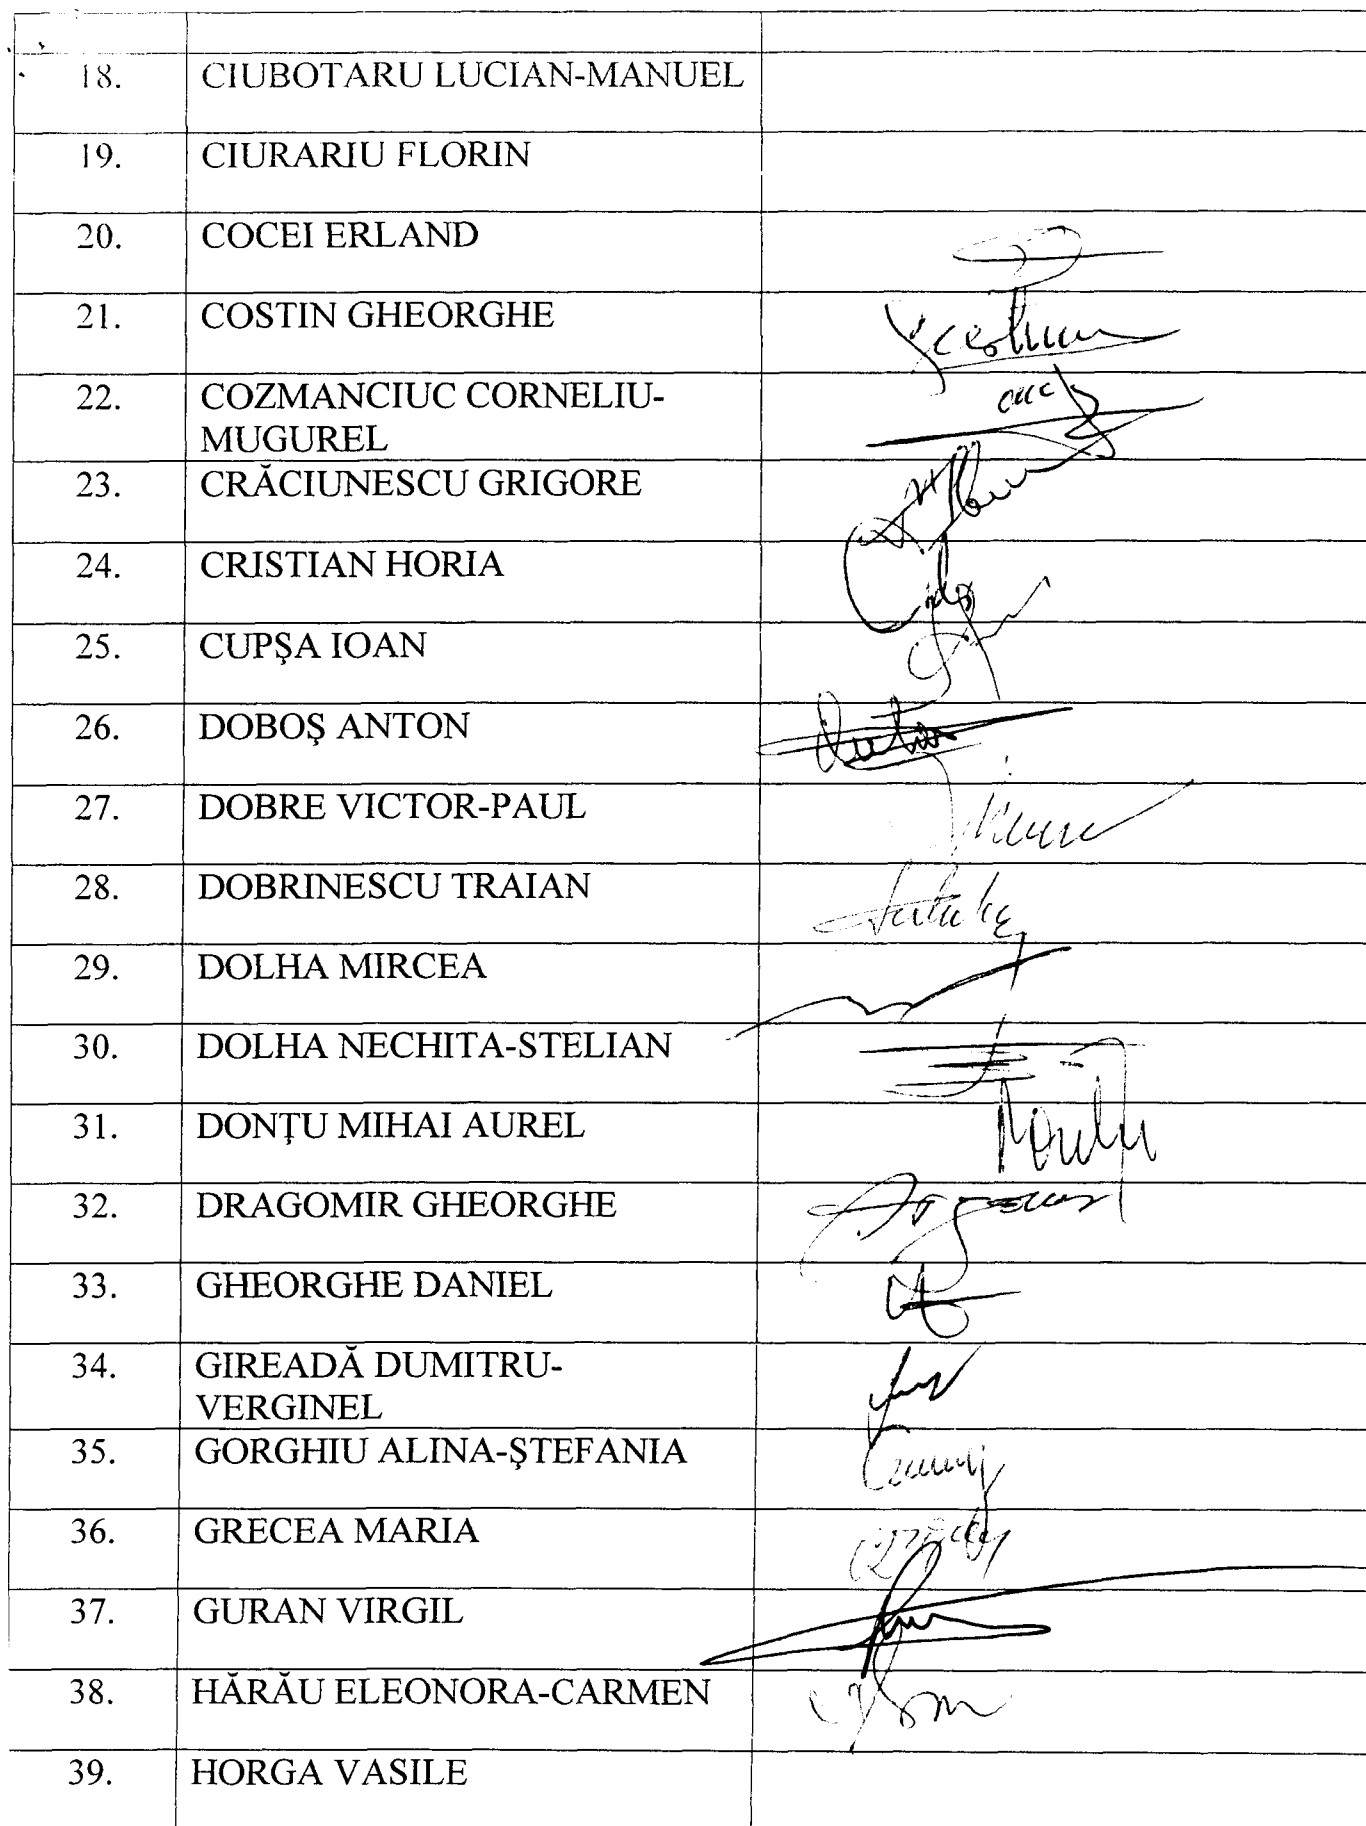 18. CIUBOTARU LUCIAN-MANUEL
19. CIURARIU FLORIN
20. COCEI ERLAND
21. COSTIN GHEORGHE
22. COZMANCIUC CORNELIU-
MUGUREL
23. CRĂCIUNESCU GRIGORE
24. CRISTIAN HORIA
25. CUPŞA IOAN
26. DOBOŞ ANTON
27. DOBRE VICTOR-PAUL
28. DOBRINESCU TRAIAN
29. DOLHA MIRCEA
30. DOLHA NECHITA-STELIAN
31. DONŢU MIHAI AUREL
32. DRAGOMIR GHEORGHE
33. GHEORGHE DANIEL
34. GIREADĂ DUMITRU-
VERGINEL
35. GORGHIU ALINA-ŞTEFANIA
36. GRECEA MARIA
37. GURAN VIRGIL
38. HĂRĂU ELEONORA-CARMEN
39. HORGA VASILE